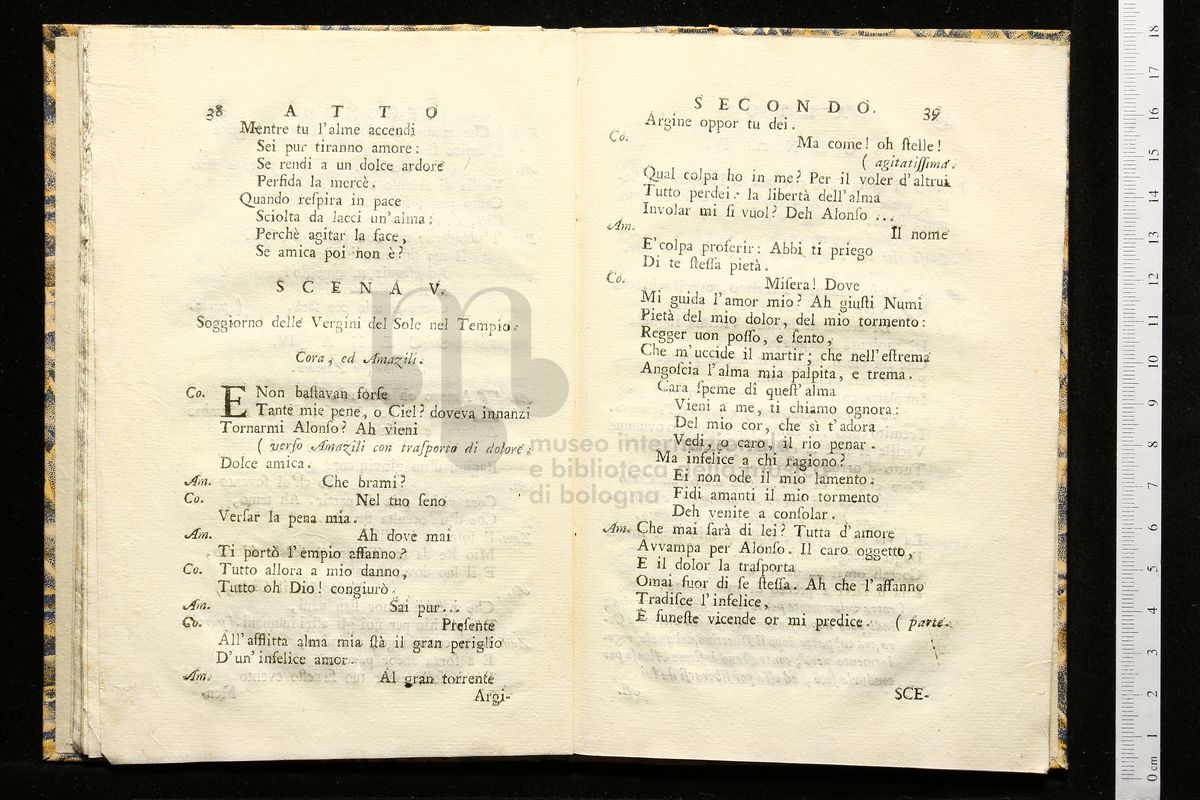 38 ATTO
Mentre tu l'alme accendi
Sei pur tiranno amore:
Se rendi a un dolce ardore
Perfida la mercè.
Quando reſpira in pace
Sciolta da lacci un'alma;
Perchè agitar la face,
Se amica poi non è?
SCENA V.
Soggiorno delle Vergini del Sole nel Tempio.
Cora, ed Amazili.
Co. E Non baſtavan forſe
Tante mie pene, o Ciel? doveva innanzi
Tornarmi Alonſo? Ah vieni
( verſo Amazili con traſporto di dolore.
Dolce amica.
Am. Che brami?
Co. Nel tuo ſeno
Verſar la pena mia.
Am. Ah dove mai
Ti portò l'empio affanno?
Co. Tutto allora a mio danno,
Tutto oh Dio! congiurò.
Am. Sai pur...
Co. Preſente
All'afflitta alma mia ſtà il gran periglio
D'un'infelice amor.
Am. Al gran torrente
Argi-
SECONDO. 39
Argine oppor tu dei.
Co. Ma come! oh ſtelle!
( agitatiſſima.
Qual colpa ho in me? Per il voler d'altrui
Tutto perdei: la libertà dell'alma
Involar mi ſi vuol? Deh Alonſo ...
Am. Il nome
E'colpa proferir: Abbi ti priego
Di te ſteſſa pietà.
Co. Miſera! Dove
Mi guida l'amor mio? Ah giuſti Numi
Pietà del mio dolor, del mio tormento:
Regger uon poſſo, e ſento,
Che m'uccide il martir; che nell'eſtrema
Angoſcia l'alma mia palpita, e trema.
Cara ſpeme di queſt'alma
Vieni a me, ti chiamo ognora:
Del mio cor, che sì t'adora
Vedi, o caro, il rio penar.
Ma infelice a chi ragiono?
Ei non ode il mio lamento.
Fidi amanti il mio tormento
Deh venite a conſolar.
Am. Che mai ſarà di lei? Tutta d'amore
Avvampa per Alonſo. Il caro oggetto,
E il dolor la traſporta
Omai fuor di ſe ſteſſa. Ah che l'affanno
Tradiſce l'infelice,
E funeſte vicende or mi predice. ( parte.
SCE-
museo internazionale
e biblioteca della musica
di bologna
0 cm 1 2 3 4 5 6 7 8 9 10 11 12 13 14 15 16 17 18